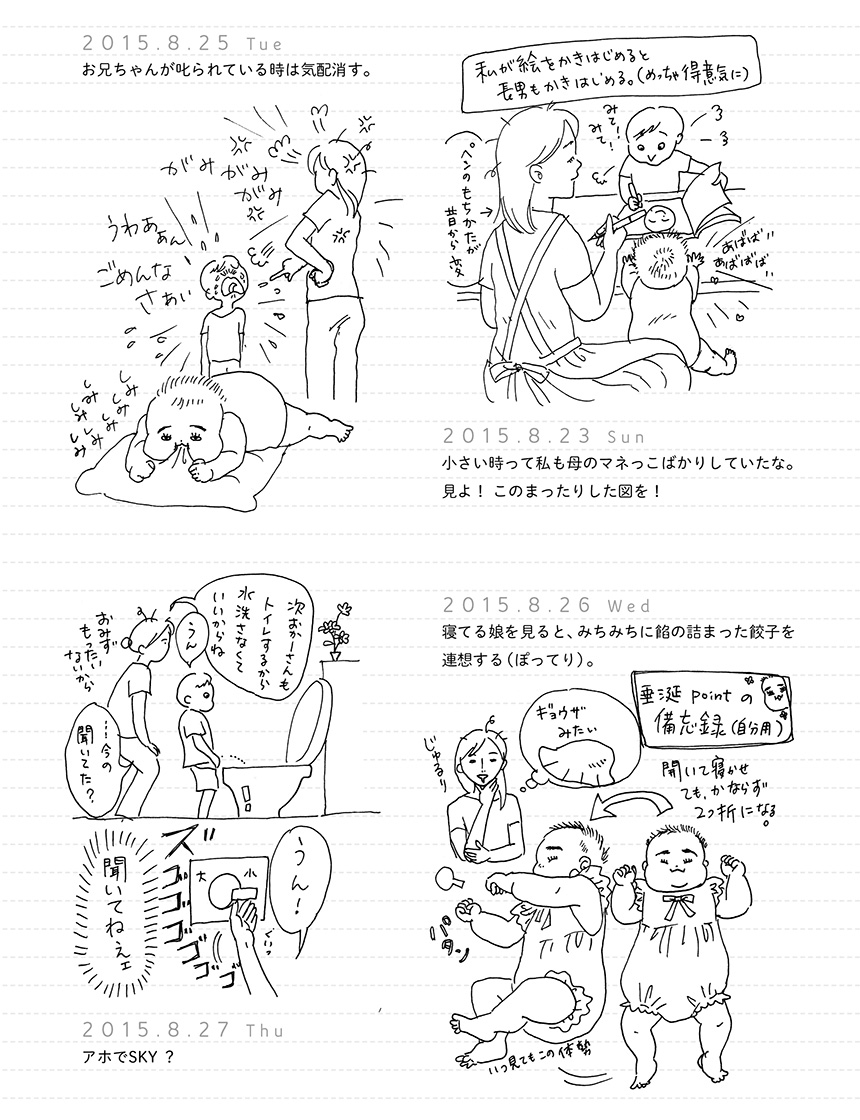 2015.8.23 Sun
小さい時って私も母のマネっこばかりしていたな。
見よ！ このまったりした図を！
私が絵をかきはじめると
長男もかきはじめる。(めっちゃ得意気に)
みて！
みて！
ペンのもちかたが
昔から変
あばば!!
あばばば!!
2015.8.25 Tue
お兄ちゃんが叱られている時は気配消す。
がみ
がみ
がみ
うわあぁん
ごめんな
さぁい
しみ
しみ
しみ
しみ
しみ
しみ
2015.8.26 Wed
寝てる娘を見ると、みちみちに餡の詰まった餃子を
連想する（ぽってり）。
垂涎 pointの
備忘録(自分用)
ギョウザ
みたい
じゅるり
開いて寝かせ
ても、かならず
2つ折になる。
パタン
いつ見てもこの体勢
次おかーさんも
トイレするから
水洗さなくて
いいからね
うん
おみず
もったい
ないから
…今の
聞いてた？
ズゴゴゴゴゴゴ
大 小
うん！
ぐいっ
聞いてねぇェ
2015.8.27 Thu
アホでSKY ？